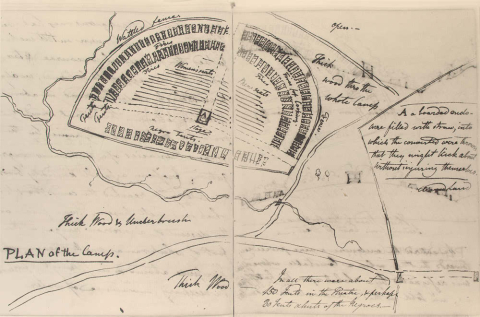 Wattle fence.
open.—
Thick
wood thro the
whole Camp
Tents
Men's seats
Stage
A
Negro Tents
A a boarded enclo-
sure filled with straw, into
which the converted were thrown
that they might kick about
without injuring themselves
Thick Wood & Underbrush
PLAN of the Camp.
Thick Wood
In all there were about
tents in the theatre, & perhaps
tents of the Negroes